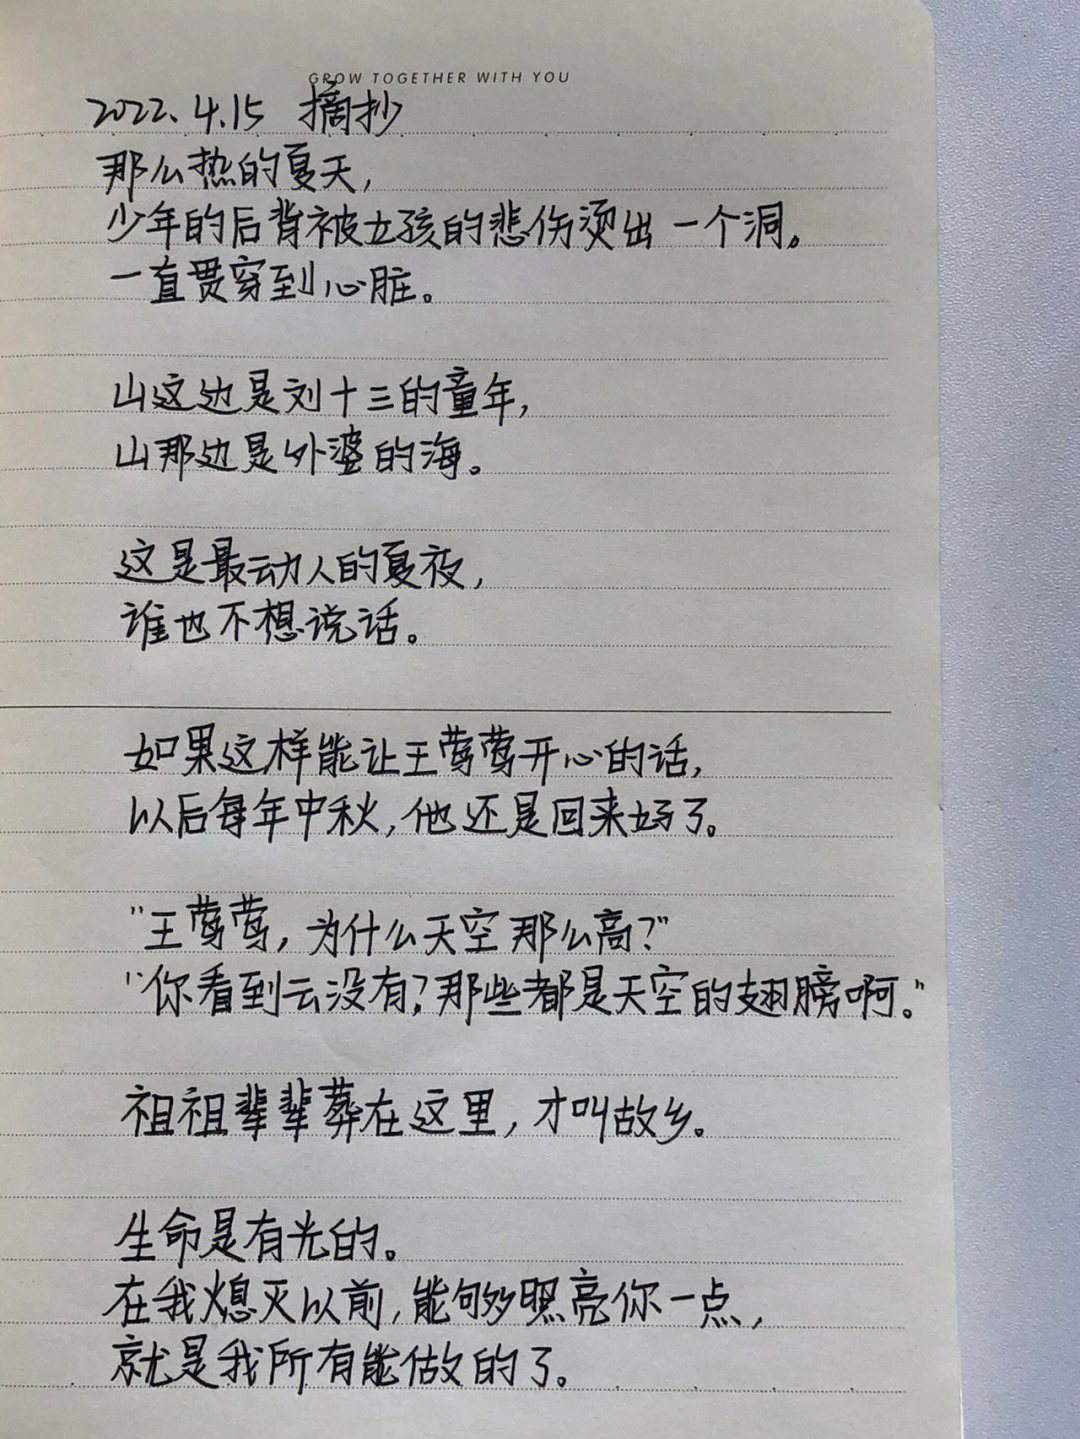 GROW TOGETHER WITH YOU
2022.4.15 摘抄
那么热的夏天,
少年的后背被女孩的悲伤烫出一个洞。
一直贯穿到心脏。
山这边是刘十三的童年,
山那边是外婆的海。
这是最动人的夏夜,
谁也不想说话。
如果这样能让王莺莺开心的话,
以后每年中秋,他还是回来好了。
"王莺莺,为什么天空那么高?"
"你看到云没有?那些都是天空的翅膀啊。"
祖祖辈辈葬在这里,才叫故乡。
生命是有光的。
在我熄灭以前,能够照亮你一点,
就是我所有能做的了。